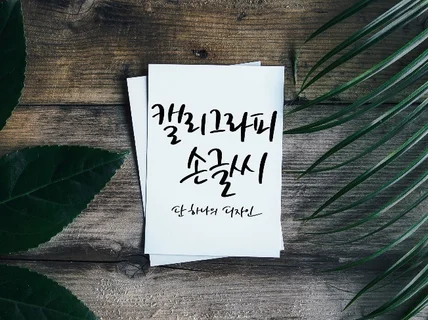 캘리그라피
손글씨
단 하나의 디자인